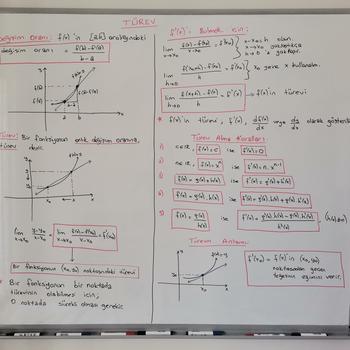 TÜREV
Değişim Oranı: f(x)'in [a,b] aralığındaki
değişim oranı = f(b)-f(a) / b-a
y
f(b)
f(a)
a
b
x
Türev: Bir fonksiyonun anlık değişim oranına,
türev denir.
y
x₀
x
lim y-y₀ / x-x₀ = lim f(x)-f(x₀) / x-x₀ = f'(x₀)
x→x₀ x→x₀
Bir fonksiyonun (x₀,y₀) noktasındaki türevi
Bir fonksiyonun bir noktada
türevinin olabilmesi için;
O noktada sürekli olması gerekir.
f'(x)'i Bulmak için:
lim f(x)-f(x₀) / x-x₀ = f'(x₀)
x→x₀
x-x₀=h olsun
x→x₀ yaklaştıkça
h→0 'a yaklaşır.
lim f(x₀+h)-f(x₀) / h = f'(x₀)
h→0
x₀ yerine x kullanalım.
lim f(x+h)-f(x) / h = f'(x)
h→0
→ f(x)'in türevi
* f(x)'in türevi, f'(x), df(x)/dx veya dy/dx olarak gösterilir
Türev Alma Kuralları
1) c∈R, f(x)=c ise f'(x)=0
2) n∈R, f(x)=xⁿ ise f'(x)=n.xⁿ⁻¹
3) f(x)=g(x)+h(x) ise f'(x)=g'(x)+h'(x)
4) f(x)=g(x).h(x) ise f'(x)=g'(x).h(x)+g(x).h'(x)
5) f(x)=g(x)/h(x) ise f'(x)=g'(x).h(x)-g(x).h'(x) / h²(x) (h(x)≠0)
Türevin Anlamı
y
y₀
x₀
x
f'(x₀) = f(x)'in (x₀,y₀)
noktasından geçen
teğetinin eğimini verir.